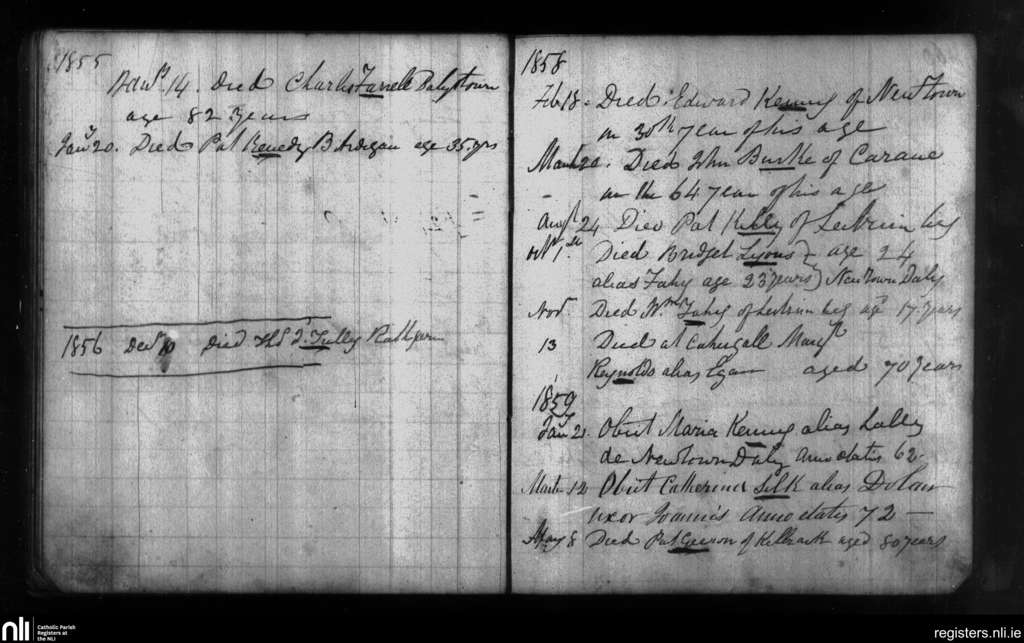 1855
14. Died Charles Farrell Balystown
age 82 years
Jany 20. Died Pat Kenedy age 35 yrs
1856 Died Thos Tully
1858
Feb 18. Died Edward Kenny of Newtown
in 30th year of his age
March 20. Died John Burke of Carane
in the 64 year of his age
Augt 24 Died Pat of Leitrim beg
Octr 1st Died Bridget Lyons age 24
alias Fahy age 23 years Newtown Daly
Novr Died Wm Fahy of Leitrim beg age 17 years
13 Died at Cahergall Mary
Reynolds alias Egan aged 70 years
1859
Jany 2. Obiit Maria Kenny alias Lally
de Newtown Daly Anno etatis 62
March 12 Obiit Catherine Silk alias Dolan
uxor Joannis Anno etatis 72 —
May 8 Died Pat of aged 80 years
nli
Catholic Parish
Registers at
the NLI
registers.nli.ie